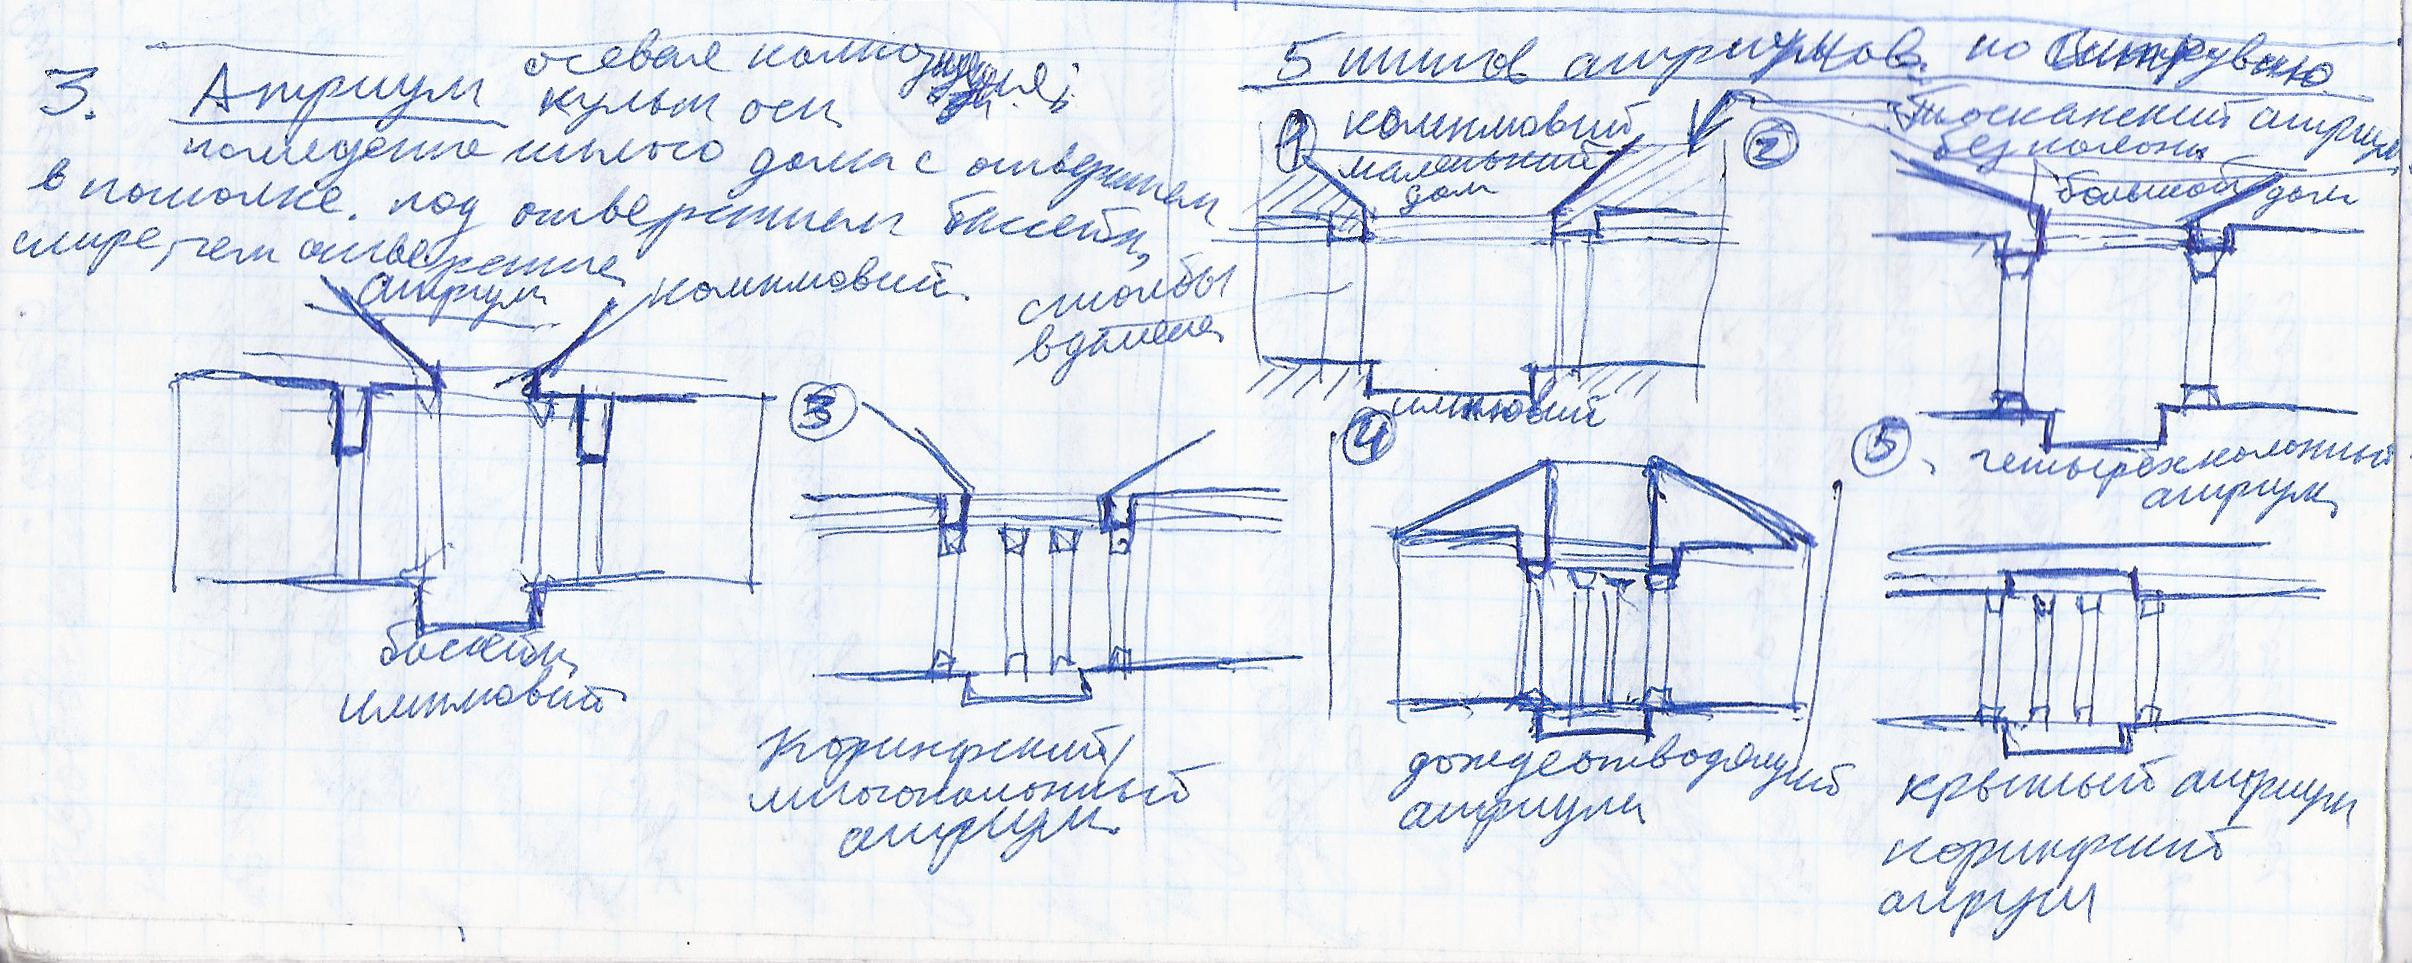 3. Атриум осевая композиция;
культ оси
помещение жилого дома с отверстием
в потолке. под отверстием бассейн,
шире, чем отверстие
атриум
комплювий.
столбы
в дыма
бассейн
имплювий
5 типов атриумов по Витрувию
1 комплювий
маленький
дом
имплювий
2 тосканский атриум
без колонн
большой дом
четырёхколонный
атриум
3
коринфский/
многоколонный
атриум.
4
дождеотводящий
атриум
5
крытый атриум
коринфский
атриум